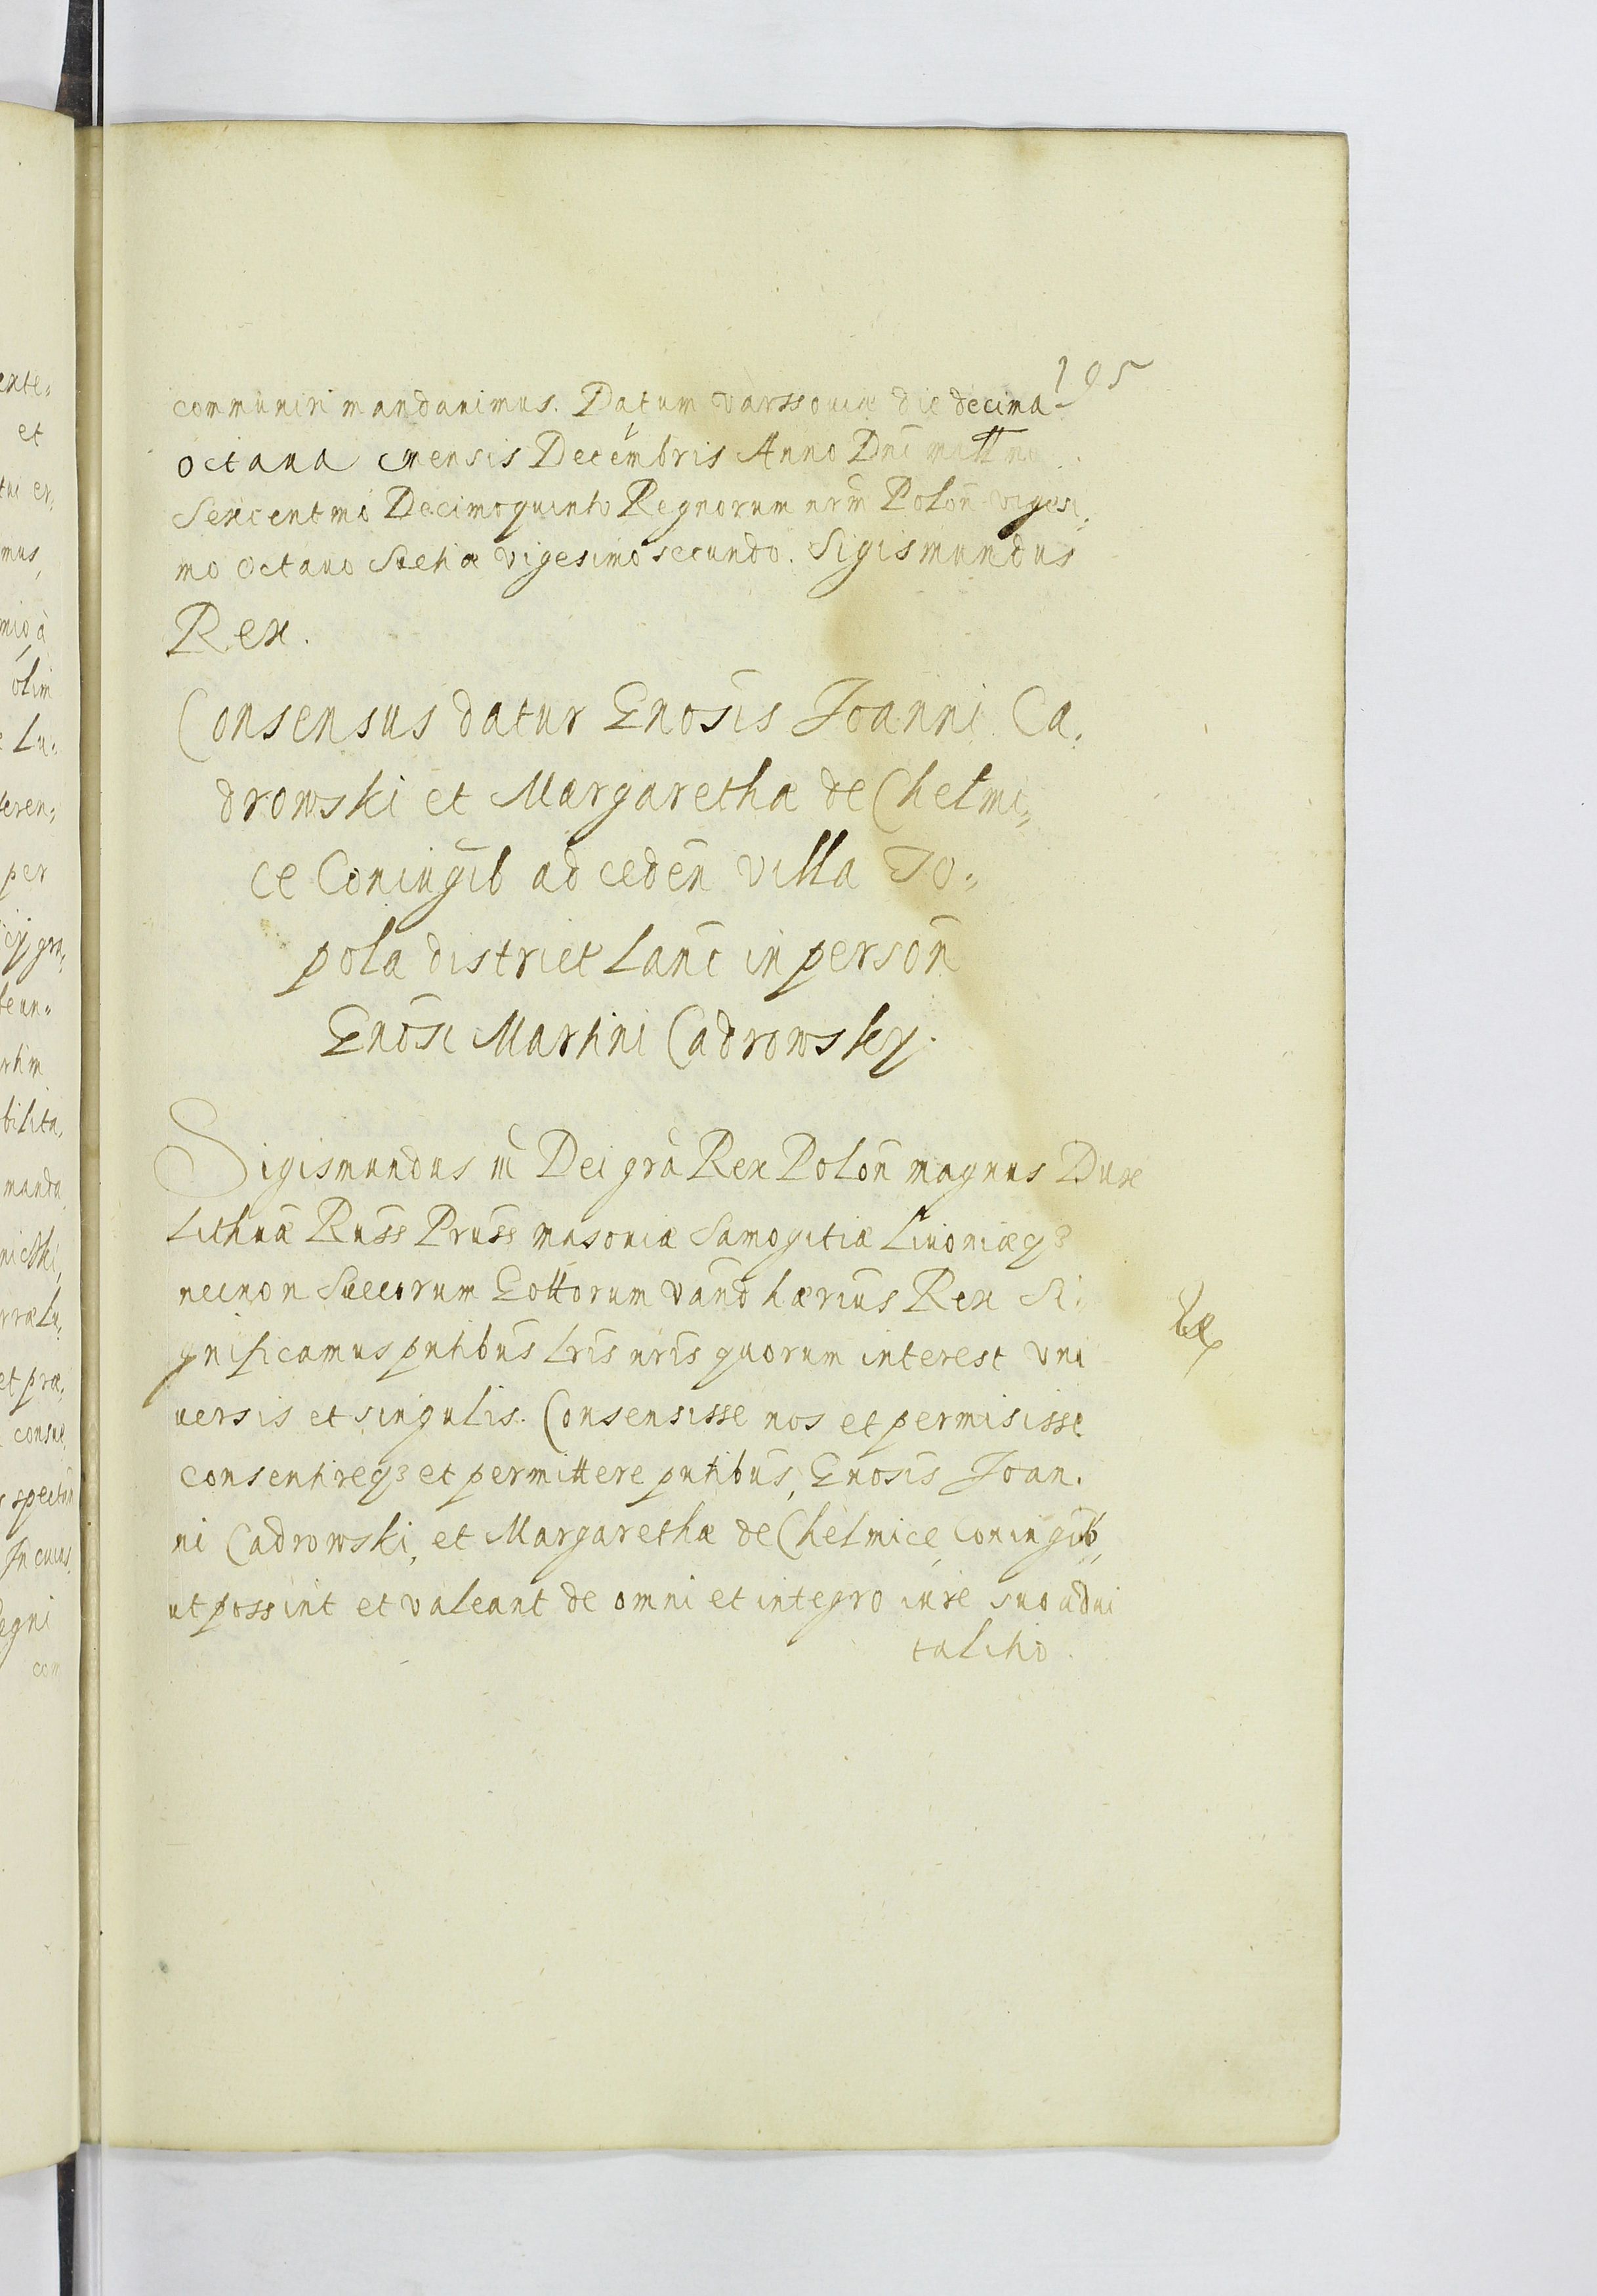 195
communiri mandauimus. Datum Varssouiæ die decima
octaua mensis Decembris Anno Dni mill mo
Sexcentmo Decimoquinto Regnorum nrm Polon vigesi,
mo octauo Suetiæ vigesimo secundo. Sigismundus
Rex.
Consensus datur Gnosis Joanni Ca,
drowski et Margarethæ de Chelmi,
ce Coniugib ad ceden villa To,
pola district Lanc in person
Gnosi Martini Cadrowsky.
Sigismundus iii Dei gra Rex Polon magnus Dux
Lithuæ Russ Pruss masouiæ Samogitiæ Liuoniæq3
necnon Suecorum Gottorum Vand hærius Rex Si,
gnificamus pntibus Lris nris quorum interest vni
uersis et singulis. Consensisse nos et permisisse
consentireq3 et permittere pntibus, Gnosis Joan.
ni Cadrowski, et Margarethæ de Chelmice, coniugib,
ut possint et valeant de omni et integro iure suo adui
talitio.